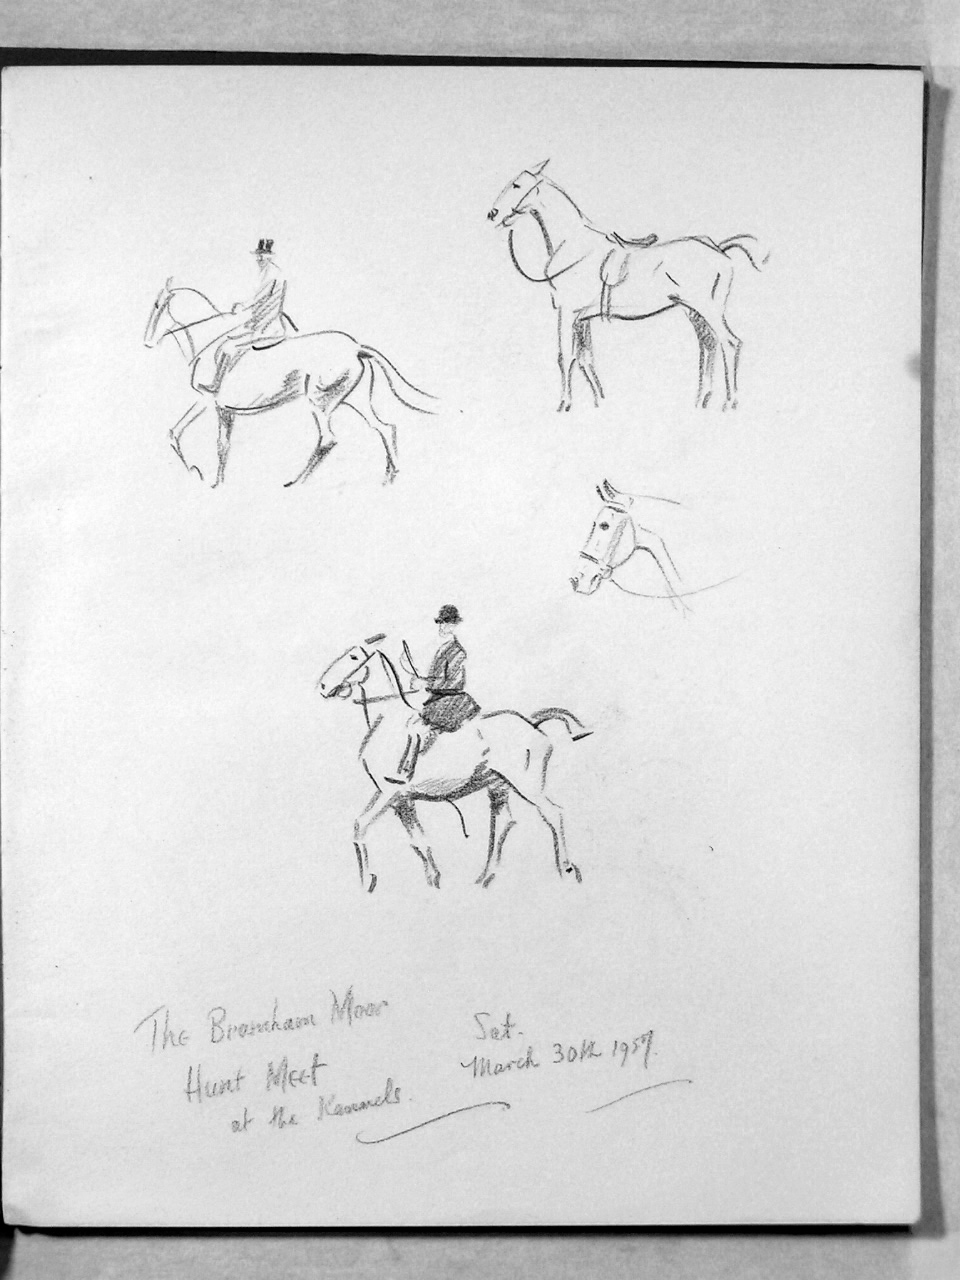 The Bramham Moor
Hunt Meet
at the Kennels.
Sat.
March 30th 1957.